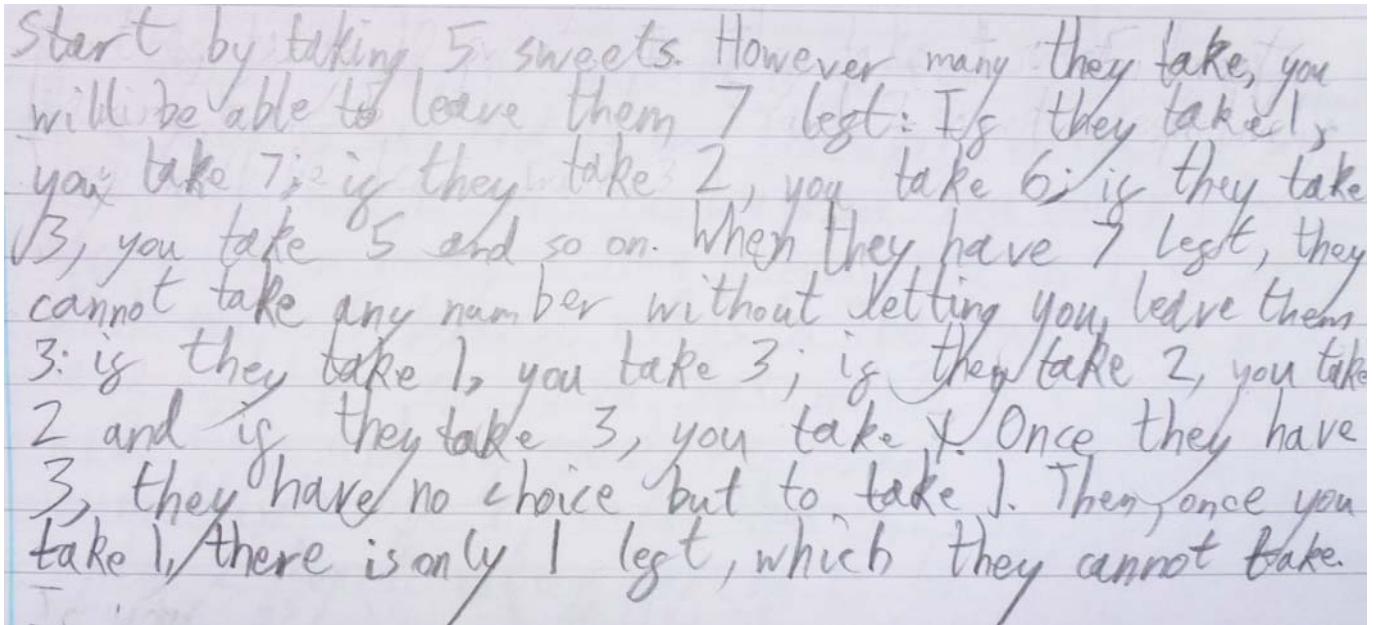 Start by taking 5 sweets. However many they take, you
will be able to leave them 7 left: If they take 1,
you take 7; if they take 2, you take 6; if they take
3, you take 5 and so on. When they have 7 left, they
cannot take any number without letting you leave them
3: if they take 1, you take 3; if they take 2, you take
2 and if they take 3, you take 1. Once they have
3, they have no choice but to take 1. Then, once you
take 1, there is only 1 left, which they cannot take.